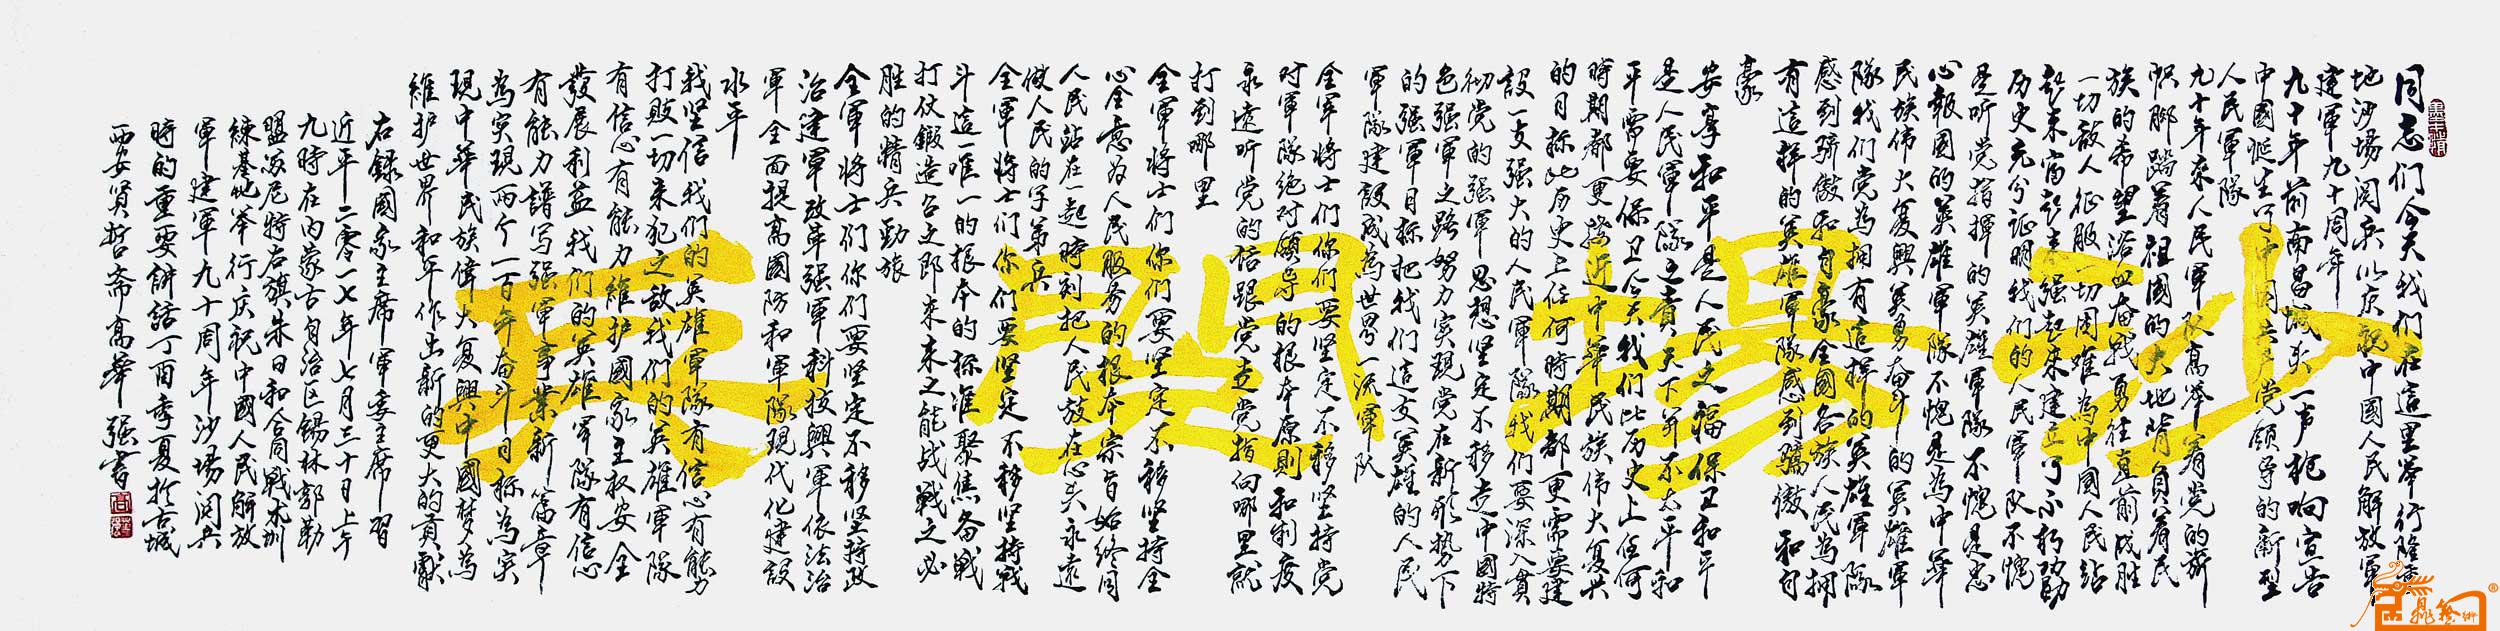 同志们今天我们在這里举行隆重
地沙場阅兵以庆祝中國人民解放軍
建軍九十周年
九十年前南昌城头一声枪响宣告
中國诞生了中国共产党领导的新型
人民軍隊
九十年来人民軍队高举着党的旗
帜脚踏着祖國的大地背负着民
族的希望浴血奋戰勇往直前战胜
一切敌人征服一切困难為中國人民站
起来富起来强起来建立了不朽功勋
历史充分证明我们的人民軍队不愧
是听党指揮的英雄軍隊不愧是忠
心報國的英雄軍隊不愧是為中華
民族伟大复興英勇奋斗的英雄軍
隊我们党為拥有這样的英雄軍隊
感到骄傲和自豪全國各族人民為拥
有這样的英雄軍隊感到驕傲和自
豪
安享和平是人民之福保卫和平
是人民軍隊之責天下并不太平和
平需要保卫今天我们比历史上任何
時期都更接近中華民族伟大复兴
的目标比历史上任何時期都更需要建
設一支强大的人民軍隊我们要深入貫
彻党的强軍思想坚定不移走中國特
色强軍之路努力实現党在新形势下
的强軍目标把我们這支英雄的人民
軍隊建設成為世界一流軍队
全軍将士们你们要坚定不移坚持党
对軍隊绝对领导的根本原則和制度
永遠听党的话跟党走党指向哪里就
打到哪里
全軍将士们你们要坚定不移坚持全
心全意为人民服务的根本宗旨始终同
人民站在一起時刻把人民放在心头永遠
做人民的子弟兵
全軍将士们你们要坚定不移坚持戰
斗這一唯一的根本的标准聚焦备戰
打仗鍛造召之即来来之能战戰之必
胜的精兵勁旅
全軍将士们你们要坚定不移坚持政
治建軍改革强軍科技興軍依法治
軍全面提高國防和軍隊現代化建設
水平
我坚信我们的英雄軍隊有信心有能力
打敗一切来犯之敵我们的英雄軍隊
有信心有能力維护國家主权安全
發展利益我们的英雄軍隊有信心
有能力譜写强軍事業新篇章
為实現两个一百年奋斗目标為实
現中華民族偉大复興中國梦為
維护世界和平作出新的更大的貢獻
右録國家主席軍委主席習
近平二零一七年七月三十日上午
九時在内蒙古自治区锡林郭勒
盟苏尼特右旗朱日和合同戰术训
練基地举行庆祝中國人民解放
軍建軍九十周年沙場阅兵
時的重要讲話丁酉季夏於古城
西安贤哲斋高華强書
沙場閱兵